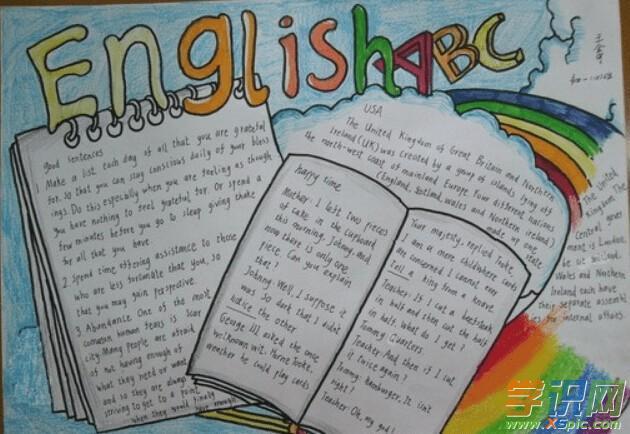 English ABC
good sentences
1. Make a list each day of all that you are grateful
for. so that you can stay conscious daily of your bless
ings. Do this especially when you are feeling as though
you have nothing to feel grateful for. Or spend a
few minutes before you go to sleep giving thake
for all that you have
2. spend time offering assistance to those
who are less fortunate that you, so
that you may gain perspective.
3. Abundance One of the most
common human fears is scar
city. Many people are afraid
of not having enough of
what they need or want
and so they are always
striving to get to a point
when they would finally
have enough
happy time
Mother: I left two pieces
of cake in the cupboard
this morning, Johnny, and
now there is only one
piece. Can you explain
that?
Johnny: Well, I suppose it
was so dark that I didn't
notice the other
George III asked the once
weather he could play cards
Your majesty, replied Tooke,
I am a mere child where cards
are concerned I cannot even
tell a king from a knave
Teacher: If I cut a beefsteak
in half and then cut the half
in half. What do I get?
Tommy: Quarters.
Teacher: And then if I cut
it twice again?
Tommy: Hamburger. It isn't
right?
Teacher: Oh, my god!
USA
The United Kingdom of Great Britain and Northern
Ireland (UK) was created by a group of islands lying off
the north-west coast of mainland Europe Four different Nations
(England, Scotland, wales and Northern ireland)
made up one
state
The United
Kingdom The
Central gover
ment is London,
Wales and Northern
Ireland each have
their separate assembl
ies for internal affairs.
学识网
www.xspic.com